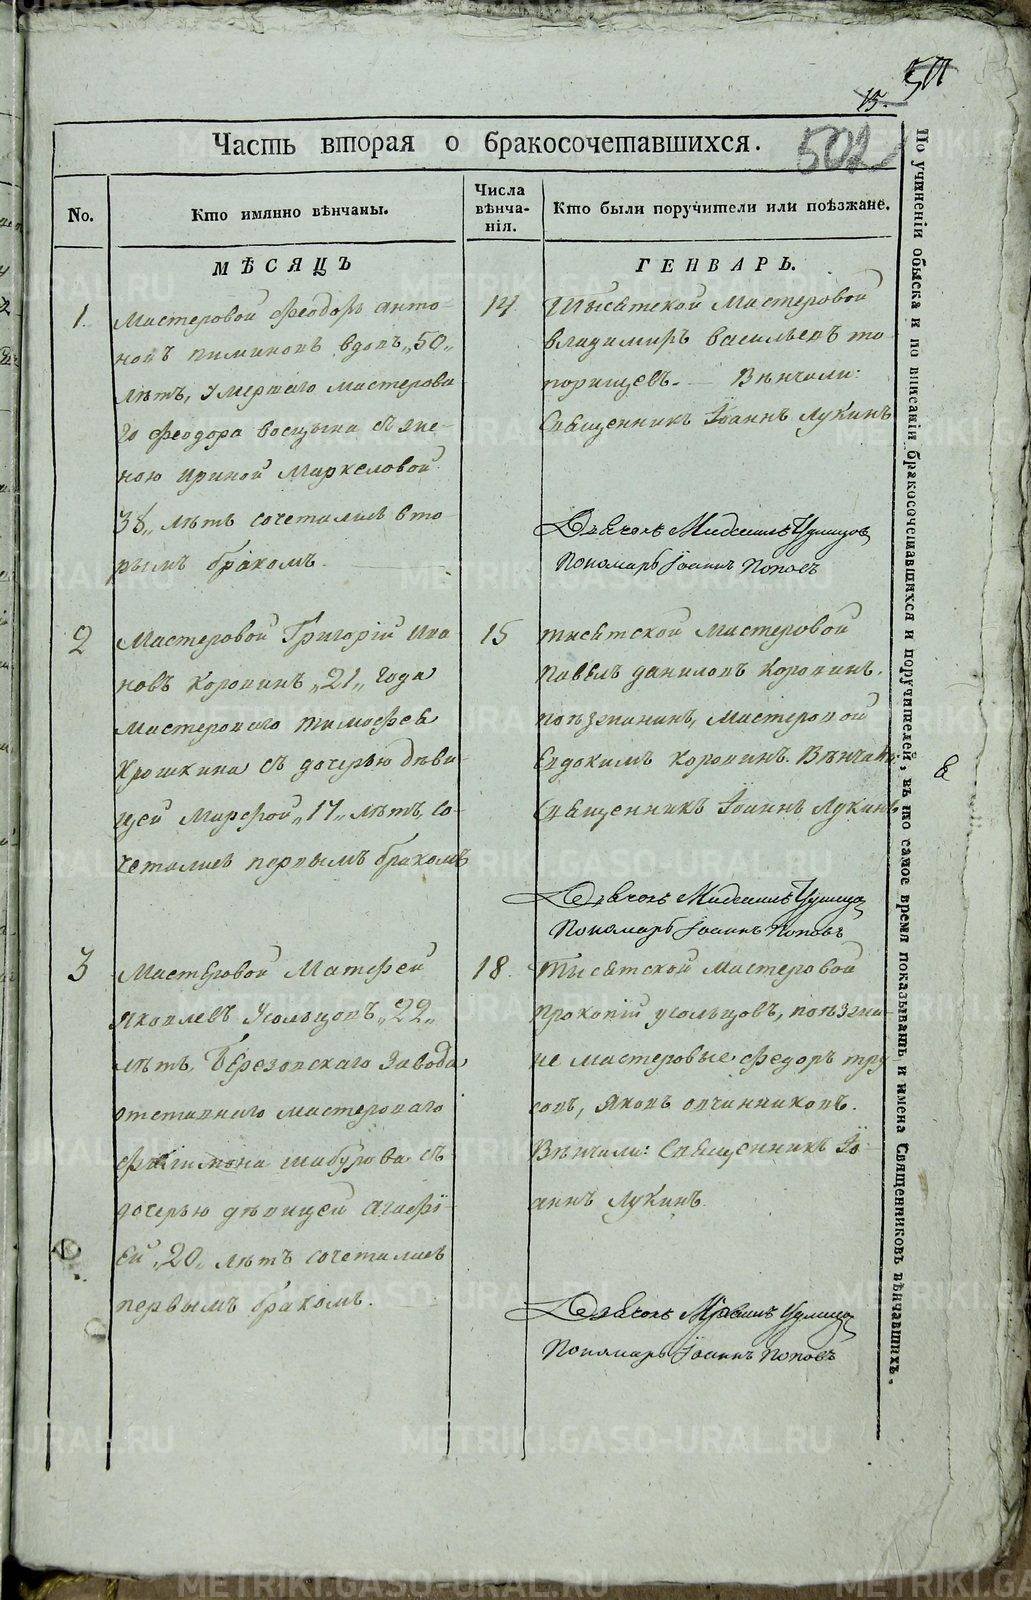 15.
50
502
Часть вторая о бракосочетавшихся.
No.
Кто имянно вѣнчаны.
Числа вѣнча-нія.
Кто были поручители или поѣзжанѣ.
МѢСЯЦЪ
ГЕНВАРЬ.
1.
Мастеровой Феодоръ Анто-
новъ Пиминовъ вдовъ „50„
лѣтъ, Умершаго мастерова
го Феодора съ же-
ною Ириной Маркеловой
38„ лѣтъ сочетались вто-
рымъ бракомъ.
14
Тысѣтской Мастеровой
Владимиръ Васильевъ То
порищевъ. Вѣнчали:
Священникъ Іоаннъ Лукинъ
Дьячокъ
Пономарь Іоаннъ Поповъ
2
Мастеровой Григорій Ива
новъ Коровинъ „21„ года
мастероваго Тимофея
Крошкина съ дочерью дѣви
цей Марфой „17„ лѣтъ, со-
четались первымъ бракомъ
15
тысѣтской мастеровой
Павелъ Даниловъ Коровинъ.
поѣзжанинъ, мастеровой
Евдокимъ Коровинъ. Вѣнчали:
Священникъ Іоаннъ Лукинъ
Дьячокъ
Пономарь Іоаннъ Поповъ
3
Мастеровой Матфей
Яковлевъ Усольцовъ „22„
лѣтъ, Березовскаго завода
отставнаго мастероваго
Филимона Шабурова съ
дочерью дѣвицей Агафі-
ей „20„ лѣтъ сочетались
первымъ бракомъ.
18.
Тысѣтской Мастеровой
Прокопій Усольцовъ, поѣзжа-
не мастеровые Федоръ Тру
совъ, Яковъ Овчинниковъ.
Вѣнчали: Священникъ Іо
аннъ Лукинъ.
Дьячокъ
Пономарь Іоаннъ Поповъ
По учиненіи обыска и по вписаніи бракосочетавшихся и поручителей, въ то самое время показывать и имена Священниковъ вѣнчавшихъ.
METRIKI.GASO-URAL.RU